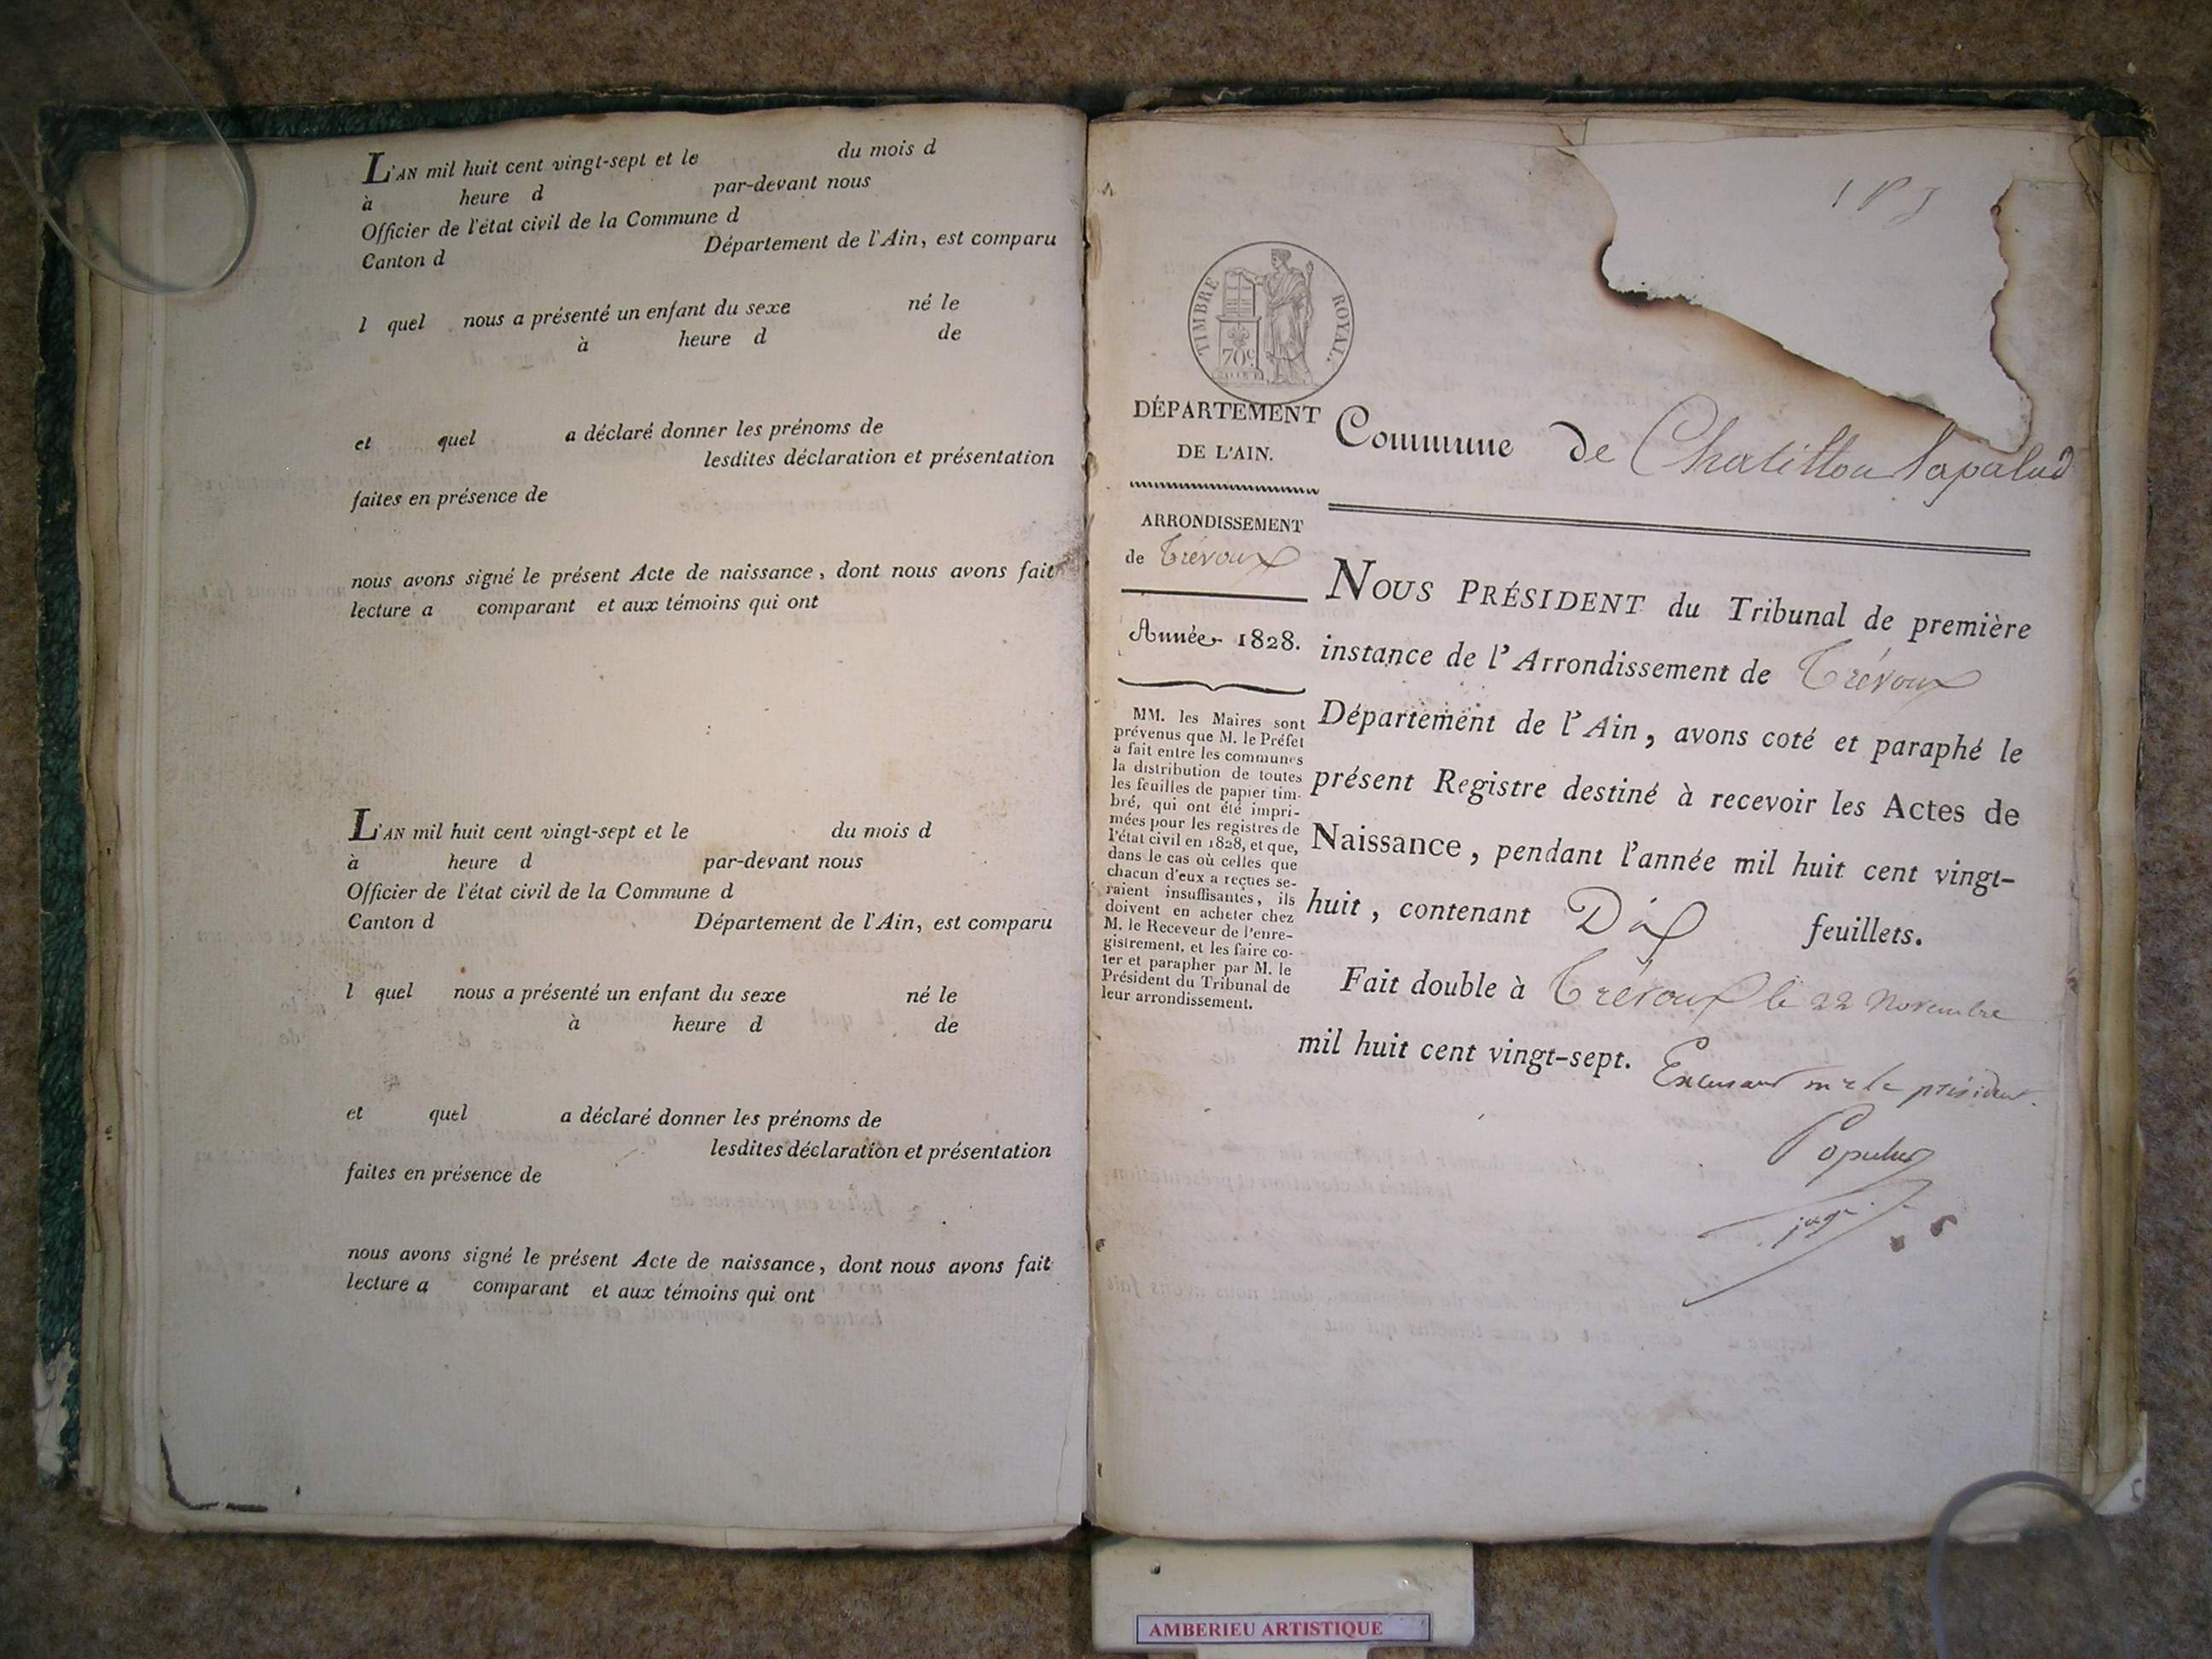 L'AN mil huit cent vingt-sept et le du mois d
à heure d par-devant nous
Officier de l'état civil de la Commune d
Canton d Département de l'Ain, est comparu
l quel nous a présenté un enfant du sexe né le
à heure d de
et quel a déclaré donner les prénoms de
lesdites déclaration et présentation
faites en présence de
nous avons signé le présent Acte de naissance, dont nous avons fait
lecture a comparant et aux témoins qui ont
L'AN mil huit cent vingt-sept et le du mois d
à heure d par-devant nous
Officier de l'état civil de la Commune d
Canton d Département de l'Ain, est comparu
l quel nous a présenté un enfant du sexe né le
à heure d de
et quel a déclaré donner les prénoms de
lesdites déclaration et présentation
faites en présence de
nous avons signé le présent Acte de naissance, dont nous avons fait
lecture a comparant et aux témoins qui ont
TIMBRE ROYAL.
70c
DÉPARTEMENT
DE L'AIN.
ARRONDISSEMENT
de Trévoux
Année 1828.
MM. les Maires sont
prévenus que M. le Préfet
a fait entre les communes
la distribution de toutes
les feuilles de papier tim-
bré, qui ont été impri-
mées pour les registres de
l'état civil en 1828, et que,
dans le cas où celles que
chacun d'eux a reçues se-
raient insuffisantes, ils
doivent en acheter chez
M. le Receveur de l'enre-
gistrement, et les faire co-
ter et parapher par M. le
Président du Tribunal de
leur arrondissement.
Commune de Chatillon Lapalud
NOUS PRÉSIDENT du Tribunal de première
instance de l'Arrondissement de Trévoux
Département de l'Ain, avons coté et paraphé le
présent Registre destiné à recevoir les Actes de
Naissance, pendant l'année mil huit cent vingt-
huit, contenant Dix feuillets.
Fait double à Trévoux le 22 Novembre
mil huit cent vingt-sept. Excusant mr le président.
Populus
juge
AMBERIEU ARTISTIQUE